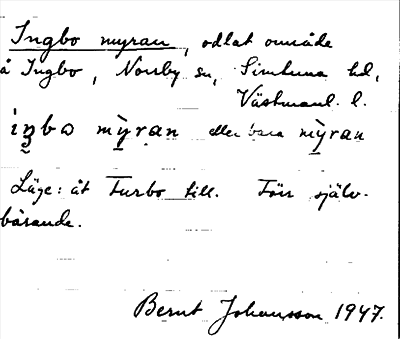 Ingbo myran, odlat område
å Ingbo, Norrby sn, Simtuna hd,
Västmanl. l.
iŋbo mỳran eller bara mỳran
Läge: åt Turbo till. För själv-
bärande.
Bernt Johansson 1947.